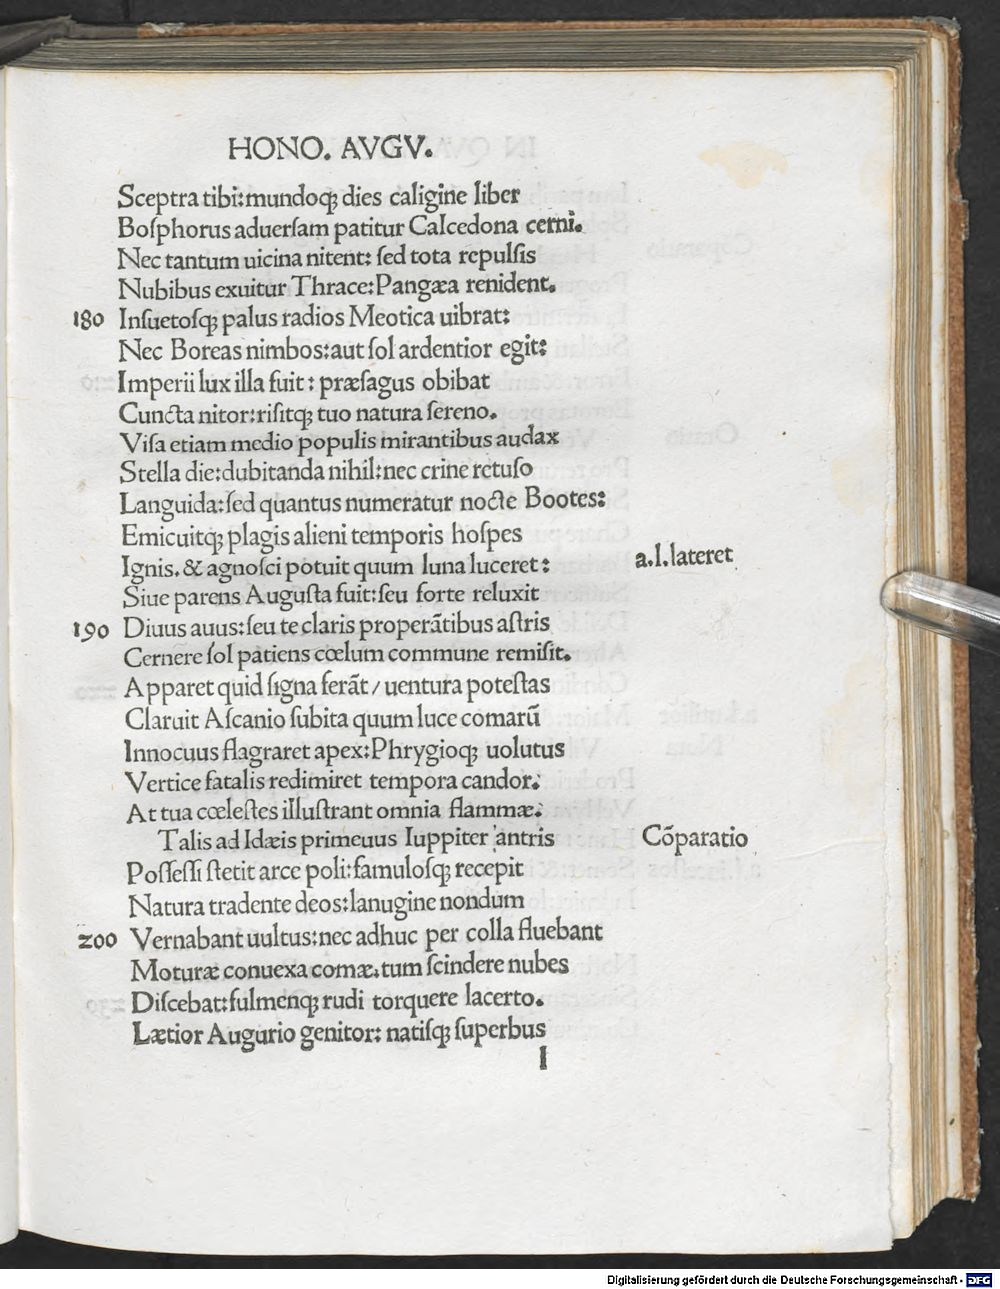 HONO. AVGV.
Sceptra tibi: mundoqꝫ dies caligine liber
Boſphorus aduerſam patitur Calcedona cerni.
Nec tantum uicina nitent: ſed tota repulſis
Nubibus exuitur Thrace: Pangæa renident.
180 Inſuetoſqꝫ palus radios Meotica uibrat:
Nec Boreas nimbos: aut ſol ardentior egit:
Imperii lux illa fuit: præſagus obibat
Cuncta nitor: riſitqꝫ tuo natura ſereno.
Viſa etiam medio populis mirantibus audax
Stella die: dubitanda nihil: nec crine retuſo
Languida: ſed quantus numeratur nocte Bootes:
Emicuitqꝫ plagis alieni temporis hoſpes
Ignis. & agnoſci potuit quum luna luceret: a.l. lateret
Siue parens Auguſta fuit: ſeu forte reluxit
190 Diuus auus: ſeu te claris properãtibus aſtris
Cernere ſol patiens cœlum commune remiſit.
Apparet quid ſigna ferãt / uentura poteſtas
Claruit Aſcanio ſubita quum luce comarũ
Innocuus flagraret apex: Phrygioqꝫ uolutus
Vertice fatalis redimiret tempora candor.
At tua cœleſtes illuſtrant omnia flammæ.
Talis ad Idæis primeuus Iuppiter antris Cõparatio
Poſſeſſi ſtetit arce poli: famuloſqꝫ recepit
Natura tradente deos: lanugine nondum
200 Vernabant uultus: nec adhuc per colla fluebant
Moturæ conuexa comæ. tum ſcindere nubes
Diſcebat: fulmenqꝫ rudi torquere lacerto.
Lætior Augurio genitor: natiſqꝫ ſuperbus
I
Digitalisierung gefördert durch die Deutsche Forschungsgemeinschaft - DFG